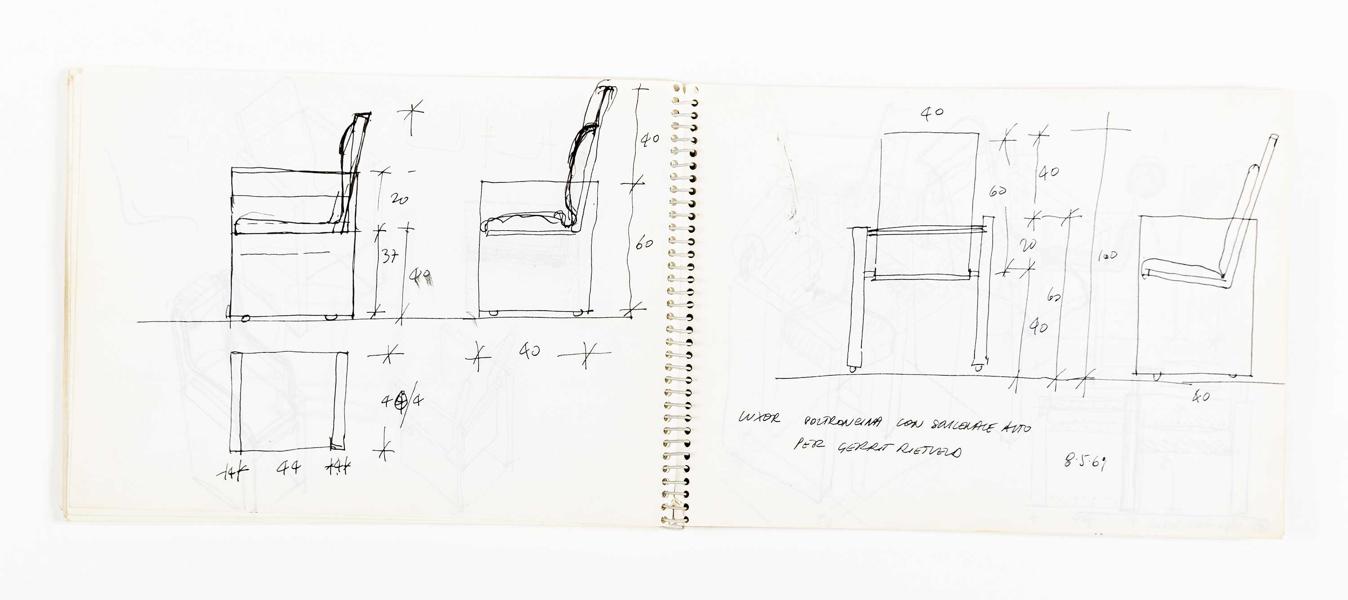 20
37
40
40
60
40
44
4
44
4
40
60
40
20
100
60
40
40
LUXOR POLTRONCINA CON SCHIENALE ALTO
PER GERRIT RIETVELD
8.5.69